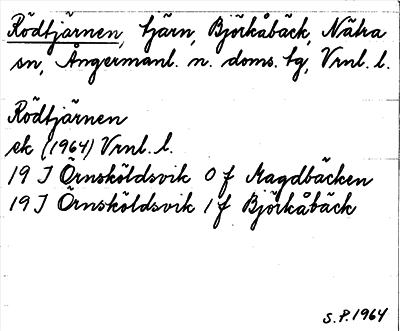 Rödtjärnen, tjärn, Björkåbäck, Nätra
sn, Ångermanl. n. doms. tg, Vrnl. l.
Rödtjärnen
ek (1964) Vrnl. l.
19 J Örnsköldsvik 0 f Magdbäcken
19 J Örnsköldsvik 1 f Björkåbäck
S.P. 1964